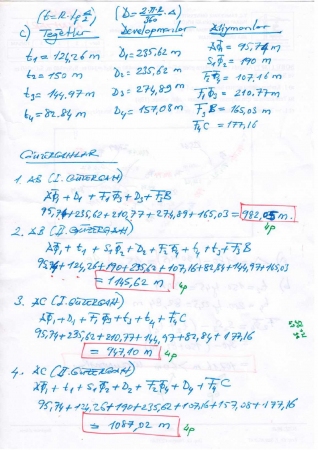 (t=R.tg Δ/2) (D=2πR/360.Δ)
c) Teğetler Developmanlar Aliymanlar
t1 = 124,26 m D1 = 235,62 m AΦ1 = 95,74 m
t2 = 150 m D2 = 235,62 m S1Φ2 = 190 m
t3 = 144,97 m D3 = 274,89 m F2Φ4 = 107,16 m
t4 = 82.84 m D4 = 157,08 m F1Φ3 = 210,77 m
F3B = 165,03 m
F4C = 177,16
GÜZERGAHLAR
1. AB (I. GÜZERGAH)
AΦ1 + D1 + F1Φ3 + D3 + F3B
95,74+235,62+210,77+274,89+165,03 = 982,05 m.
4p
2. AB (II. GÜZERGAH)
AΦ1 + t1 + S1Φ2 + D2 + F2Φ4 + t4 + t3 + F3B
95,74+124,26+190+235,62+107,16+82,84+144,97+165,03
= 1145,62 m 4p
3. AC (I. GÜZERGAH)
AΦ1 + D1 + F1Φ3 + t3 + t4 + F4C
95,74+235,62+210,77+144,97+82,84+177,16
= 947,10 m 4p
4. AC (II. GÜZERGAH)
AΦ1 + t1 + S1Φ2 + D2 + F2Φ4 + D4 + F4C
95,74+124,26+190+235,62+107,16+157,08+177,16
= 1087,02 m 4p